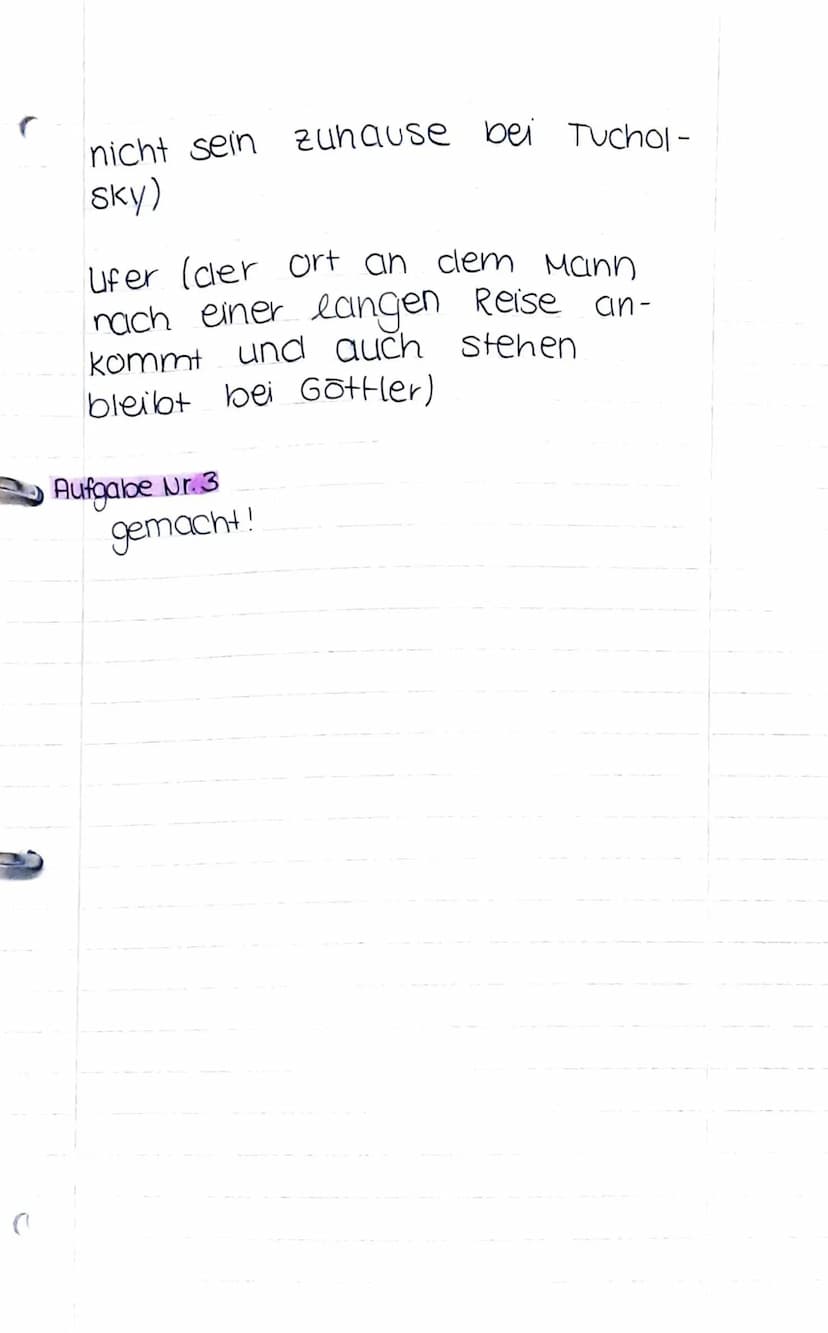 nicht sein zuhause bei Tuchol-
sky)
Ufer (der Ort an dem Mann
nach einer langen Reise an-
kommt und auch stehen
bleibt bei Göttler)
Aufgabe Nr. 3
gemacht!